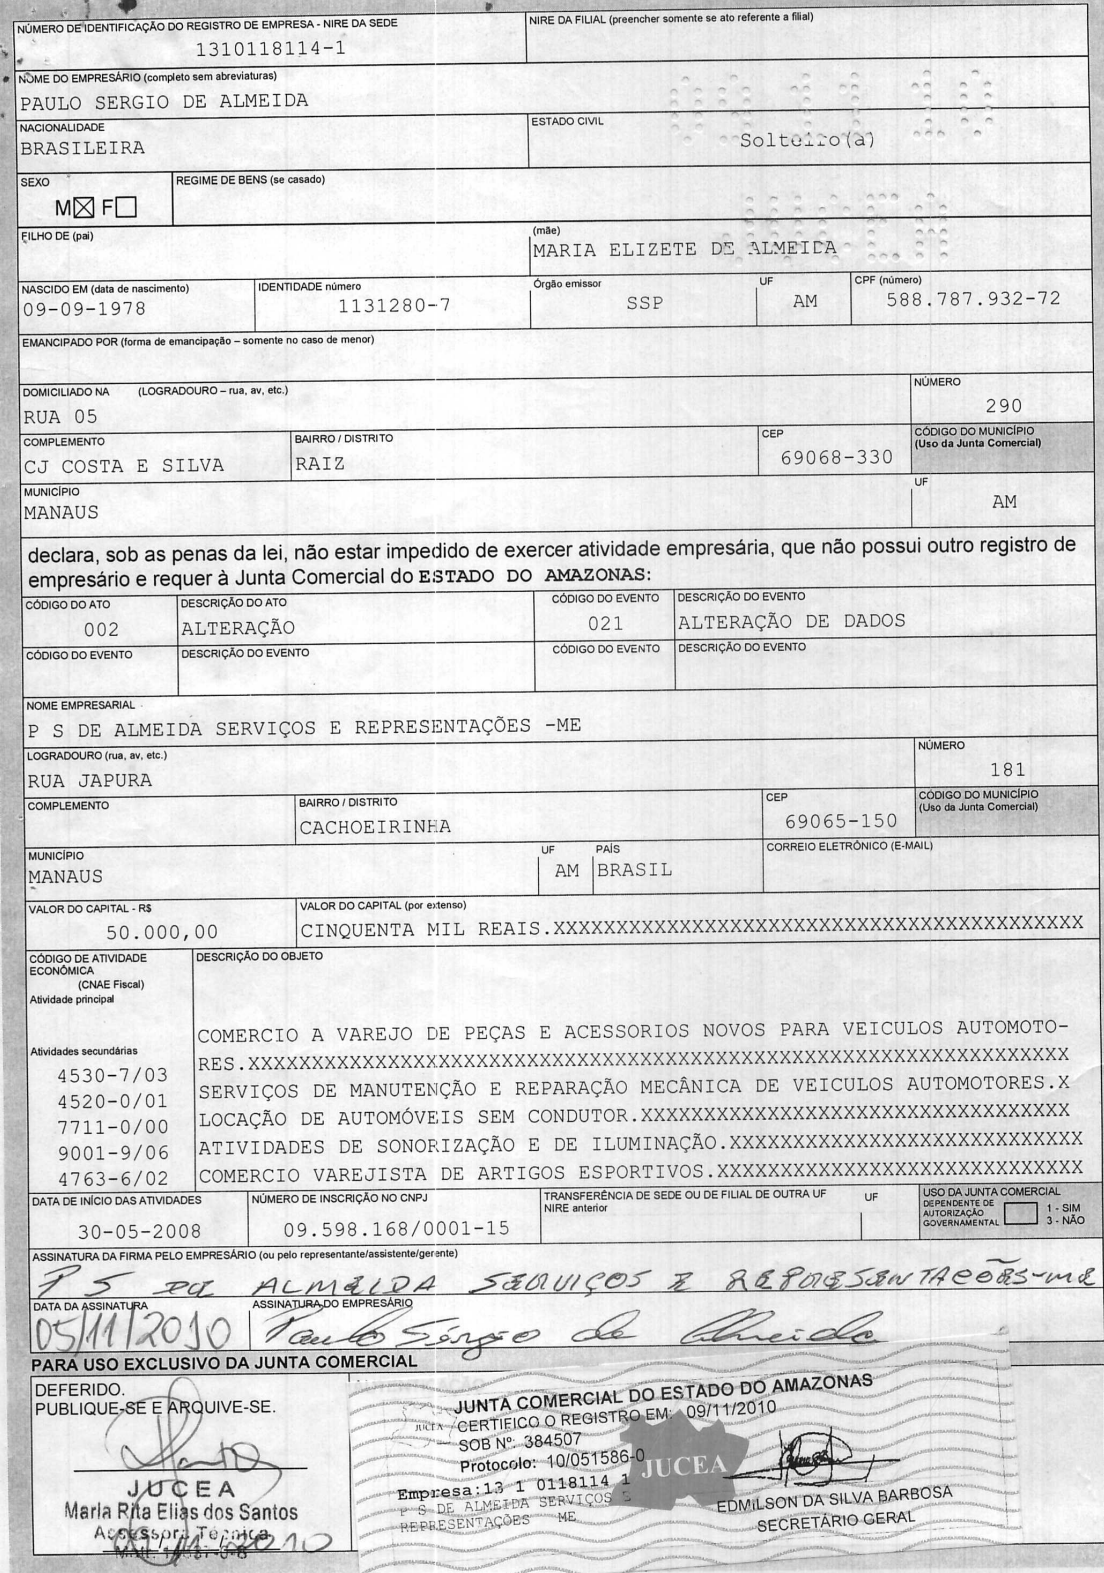 NÚMERO DE IDENTIFICAÇÃO DO REGISTRO DE EMPRESA - NIRE DA SEDE
1310118114-1
NIRE DA FILIAL (preencher somente se ato referente a filial)
NOME DO EMPRESÁRIO (completo sem abreviaturas)
PAULO SERGIO DE ALMEIDA
NACIONALIDADE
BRASILEIRA
ESTADO CIVIL
Solteiro(a)
SEXO
M☒ F☐
REGIME DE BENS (se casado)
FILHO DE (pai)
(mãe)
MARIA ELIZETE DE ALMEIDA
NASCIDO EM (data de nascimento)
09-09-1978
IDENTIDADE número
1131280-7
Órgão emissor
SSP
UF
AM
CPF (número)
588.787.932-72
EMANCIPADO POR (forma de emancipação – somente no caso de menor)
DOMICILIADO NA (LOGRADOURO – rua, av, etc.)
RUA 05
NÚMERO
290
COMPLEMENTO
CJ COSTA E SILVA
BAIRRO / DISTRITO
RAIZ
CEP
69068-330
CÓDIGO DO MUNICÍPIO
(Uso da Junta Comercial)
MUNICÍPIO
MANAUS
UF
AM
declara, sob as penas da lei, não estar impedido de exercer atividade empresária, que não possui outro registro de
empresário e requer à Junta Comercial do ESTADO DO AMAZONAS:
CÓDIGO DO ATO
002
DESCRIÇÃO DO ATO
ALTERAÇÃO
CÓDIGO DO EVENTO
021
DESCRIÇÃO DO EVENTO
ALTERAÇÃO DE DADOS
CÓDIGO DO EVENTO
DESCRIÇÃO DO EVENTO
CÓDIGO DO EVENTO
DESCRIÇÃO DO EVENTO
NOME EMPRESARIAL
P S DE ALMEIDA SERVIÇOS E REPRESENTAÇÕES -ME
LOGRADOURO (rua, av, etc.)
RUA JAPURA
NÚMERO
181
COMPLEMENTO
BAIRRO / DISTRITO
CACHOEIRINHA
CEP
69065-150
CÓDIGO DO MUNICÍPIO
(Uso da Junta Comercial)
MUNICÍPIO
MANAUS
UF
AM
PAÍS
BRASIL
CORREIO ELETRÔNICO (E-MAIL)
VALOR DO CAPITAL - R$
50.000,00
VALOR DO CAPITAL (por extenso)
CINQUENTA MIL REAIS.XXXXXXXXXXXXXXXXXXXXXXXXXXXXXXXXXXXXXXXXX
CÓDIGO DE ATIVIDADE
ECONÔMICA
(CNAE Fiscal)
Atividade principal
Atividades secundárias
4530-7/03
4520-0/01
7711-0/00
9001-9/06
4763-6/02
DESCRIÇÃO DO OBJETO
COMERCIO A VAREJO DE PEÇAS E ACESSORIOS NOVOS PARA VEICULOS AUTOMOTO-
RES.XXXXXXXXXXXXXXXXXXXXXXXXXXXXXXXXXXXXXXXXXXXXXXXXXXXXXXXXXXXXXXXXX
SERVIÇOS DE MANUTENÇÃO E REPARAÇÃO MECÂNICA DE VEICULOS AUTOMOTORES.X
LOCAÇÃO DE AUTOMÓVEIS SEM CONDUTOR.XXXXXXXXXXXXXXXXXXXXXXXXXXXXXXXXXX
ATIVIDADES DE SONORIZAÇÃO E DE ILUMINAÇÃO.XXXXXXXXXXXXXXXXXXXXXXXXXXXX
COMERCIO VAREJISTA DE ARTIGOS ESPORTIVOS.XXXXXXXXXXXXXXXXXXXXXXXXXXXXX
DATA DE INÍCIO DAS ATIVIDADES
30-05-2008
NÚMERO DE INSCRIÇÃO NO CNPJ
09.598.168/0001-15
TRANSFERÊNCIA DE SEDE OU DE FILIAL DE OUTRA UF
NIRE anterior
UF
USO DA JUNTA COMERCIAL
DEPENDENTE DE
AUTORIZAÇÃO
GOVERNAMENTAL
1 - SIM
3 - NÃO
ASSINATURA DA FIRMA PELO EMPRESÁRIO (ou pelo representante/assistente/gerente)
P S DE ALMEIDA SERVIÇOS E REPRESENTAÇÕES-ME
DATA DA ASSINATURA
05/11/2010
ASSINATURA DO EMPRESÁRIO
Paulo Sérgio de Almeida
PARA USO EXCLUSIVO DA JUNTA COMERCIAL
DEFERIDO.
PUBLIQUE-SE E ARQUIVE-SE.
JUCEA
Maria Rita Elias dos Santos
Assessora Técnica
JUNTA COMERCIAL DO ESTADO DO AMAZONAS
CERTIFICO O REGISTRO EM: 09/11/2010
SOB Nº: 384507
Protocolo: 10/051586-0
JUCEA
JUCEA
Empresa:13 1 0118114 1
P S DE ALMEIDA SERVIÇOS E
REPRESENTAÇÕES ME
EDMILSON DA SILVA BARBOSA
SECRETÁRIO GERAL